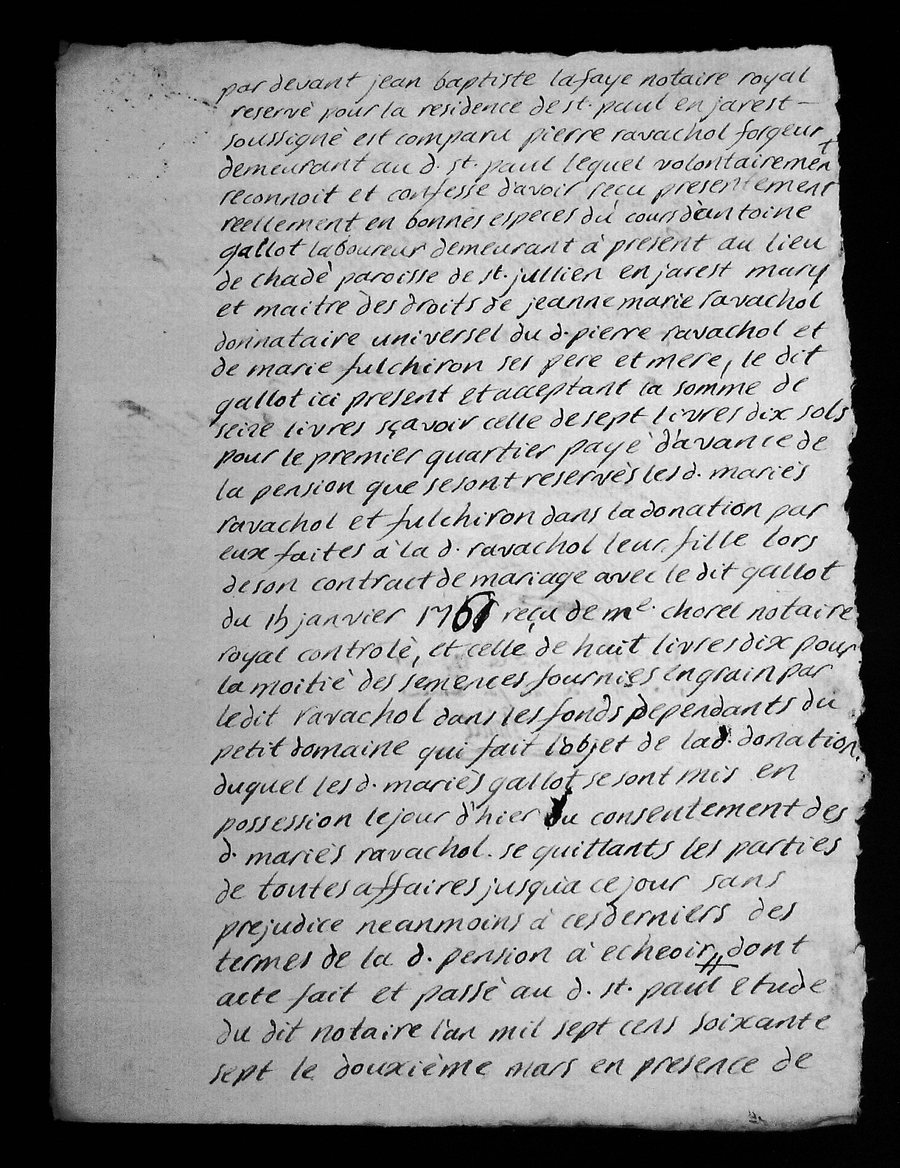 par devant jean baptiste lafaye notaire royal
reservé pour la residence de st. paul en jarest –
soussigné est comparu pierre ravachol forgeur
demeurant au d. st. paul lequel volontairement
reconnoit et confesse d'avoir reçu presentement
reellement en bonnes especes du cours d'antoine
gallot laboureur demeurant à present au lieu
de chadè paroisse de st. jullien en jarest mary
et maitre des droits de jeanne marie ravachol
donnataire universel du d. pierre ravachol et
de marie fulchiron ses pere et mere, le dit
gallot ici present et acceptant la somme de
seize livres sçavoir celle de sept livres dix sols
pour le premier quartier payé d'avance de
la pension que se sont reservès les d. mariès
ravachol et fulchiron dans la donation par
eux faites à la d. ravachol leur fille lors
de son contract de mariage avec le dit gallot
du 15 janvier 1761 reçu de me. chorel notaire
royal controlè, et celle de huit livres dix pour
la moitiè des semences fournies en grain par
ledit ravachol dans les fonds dependants du
petit domaine qui fait l'objet de la d. donation,
duquel les d. mariès gallot se sont mis en
possession le jour d'hier du consentement des
d. mariès ravachol. se quittants les parties
de toutes affaires jusqu'a ce jour sans
prejudice neanmoins à ces derniers des
termes de la d. pension à echeoir,, dont
acte fait et passè au d. st. paul etude
du dit notaire l'an mil sept cens soixante
sept le douxième mars en presence de